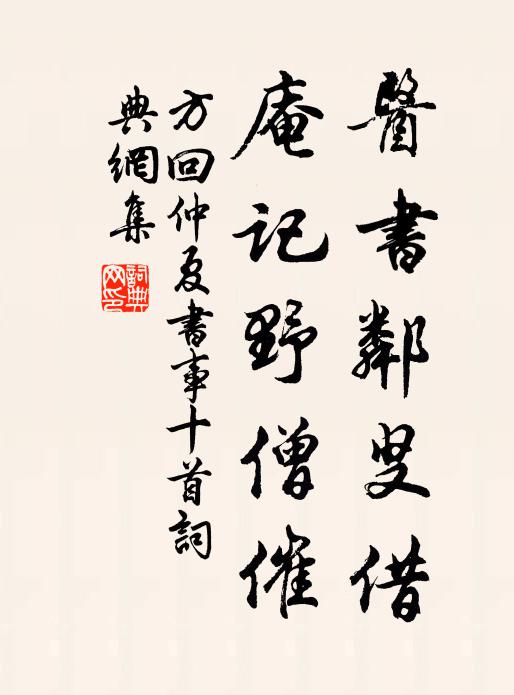 醫書鄰叟借
庵記野僧催
方回仲夏書事十首詞
典網集
詞典網印